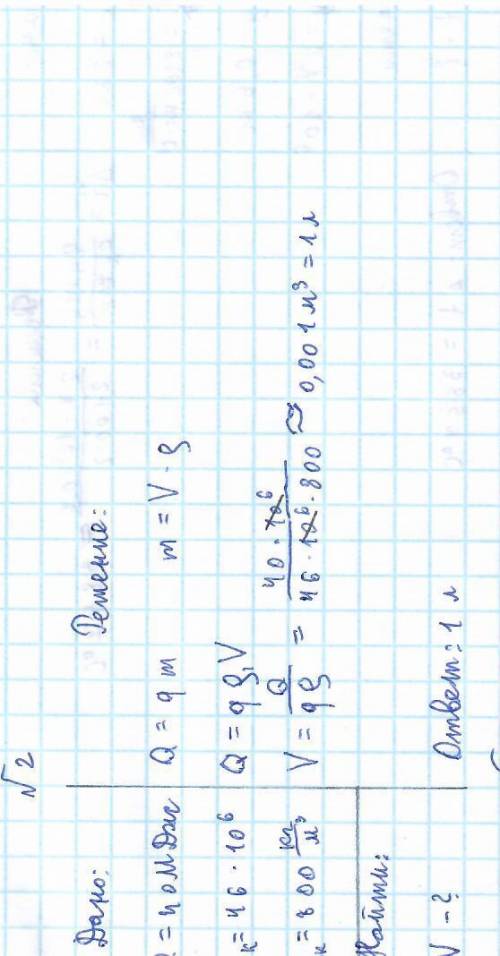 √2
Дано:
Q = 40 МДж
к = 46 · 10⁶
к = 800 кг/м³
Найти:
V - ?
Решение:
Q = q m m = V · ρ
Q = q ρ₁ V
V = Q/qρ = 40 · 10⁶/46 · 10⁶ · 800 ≈ 0,001 м³ = 1 л
Ответ: 1 л